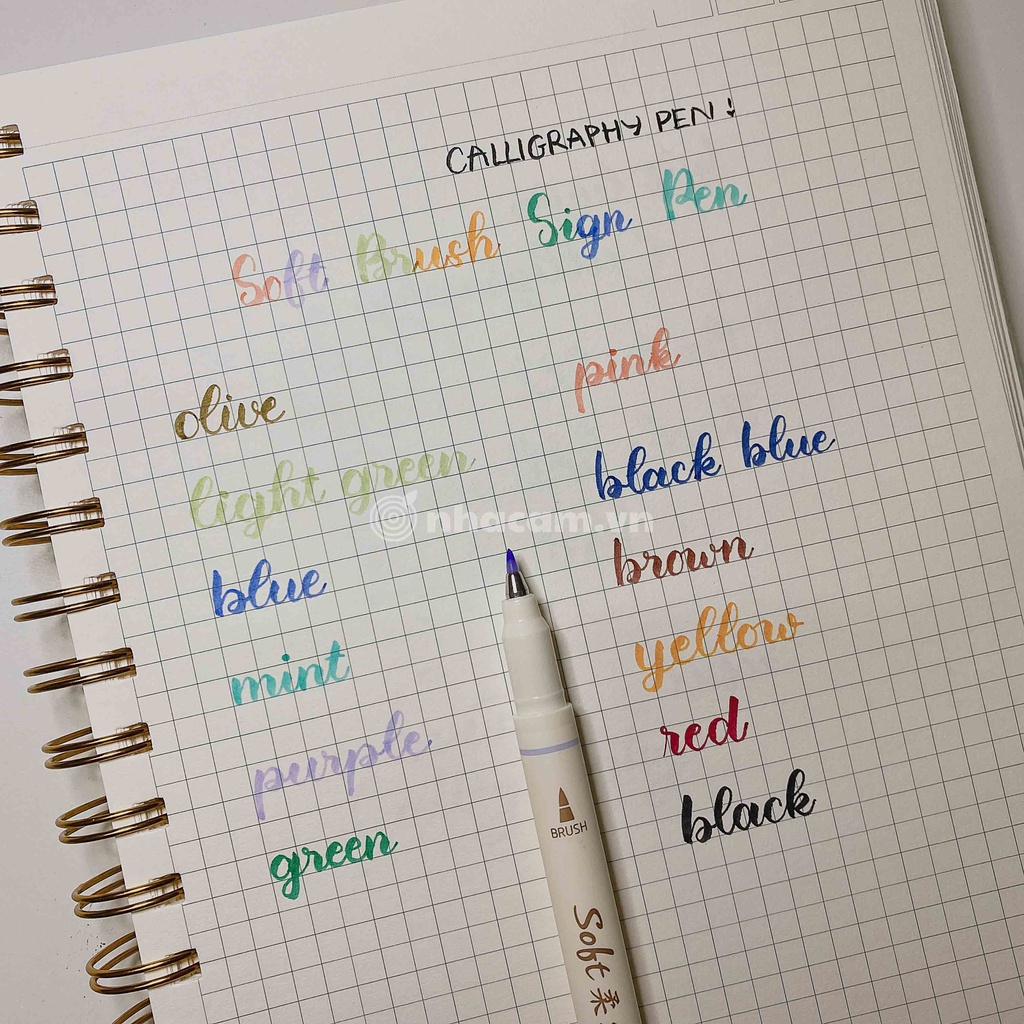 CALLIGRAPHY PEN!
Soft Brush Sign Pen
olive
light green
blue
mint
purple
green
pink
black blue
brown
yellow
red
black
nhacam.vn
BRUSH
Soft 柔